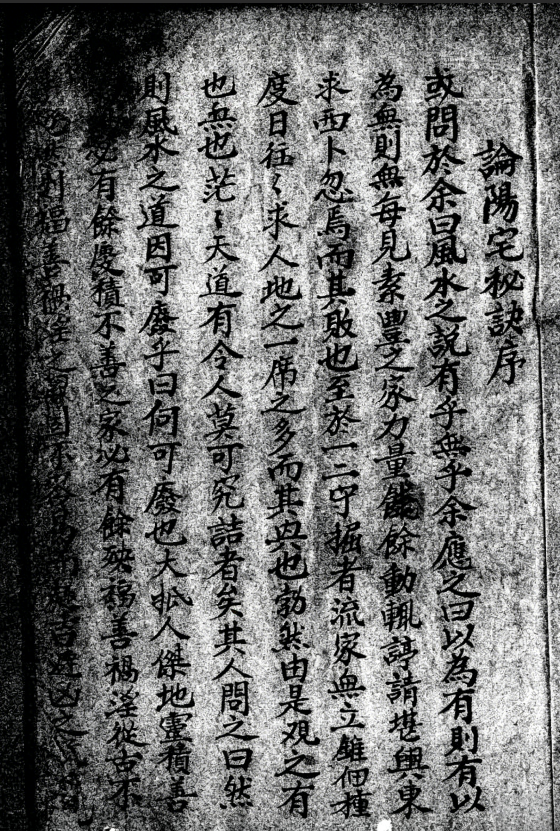 論陽宅秘訣序
或問於余曰風水之説有乎無乎余應之曰以為有則有以
為無則無每見素豐之家力量饒餘動輒諄請堪輿東
求西卜忽焉而其敗也至於一二守掘者流家無立錐佃種
度日往〻求人地之一席之多而其興也勃然由是观之有
也無也茫〻天道有令人莫可究詰者矣其人問之曰然
則風水之道因可廢乎曰何可廢也大抵人傑地靈積善
必有餘慶積不善之家必有餘殃福善禍淫從古不
則福善禍淫之